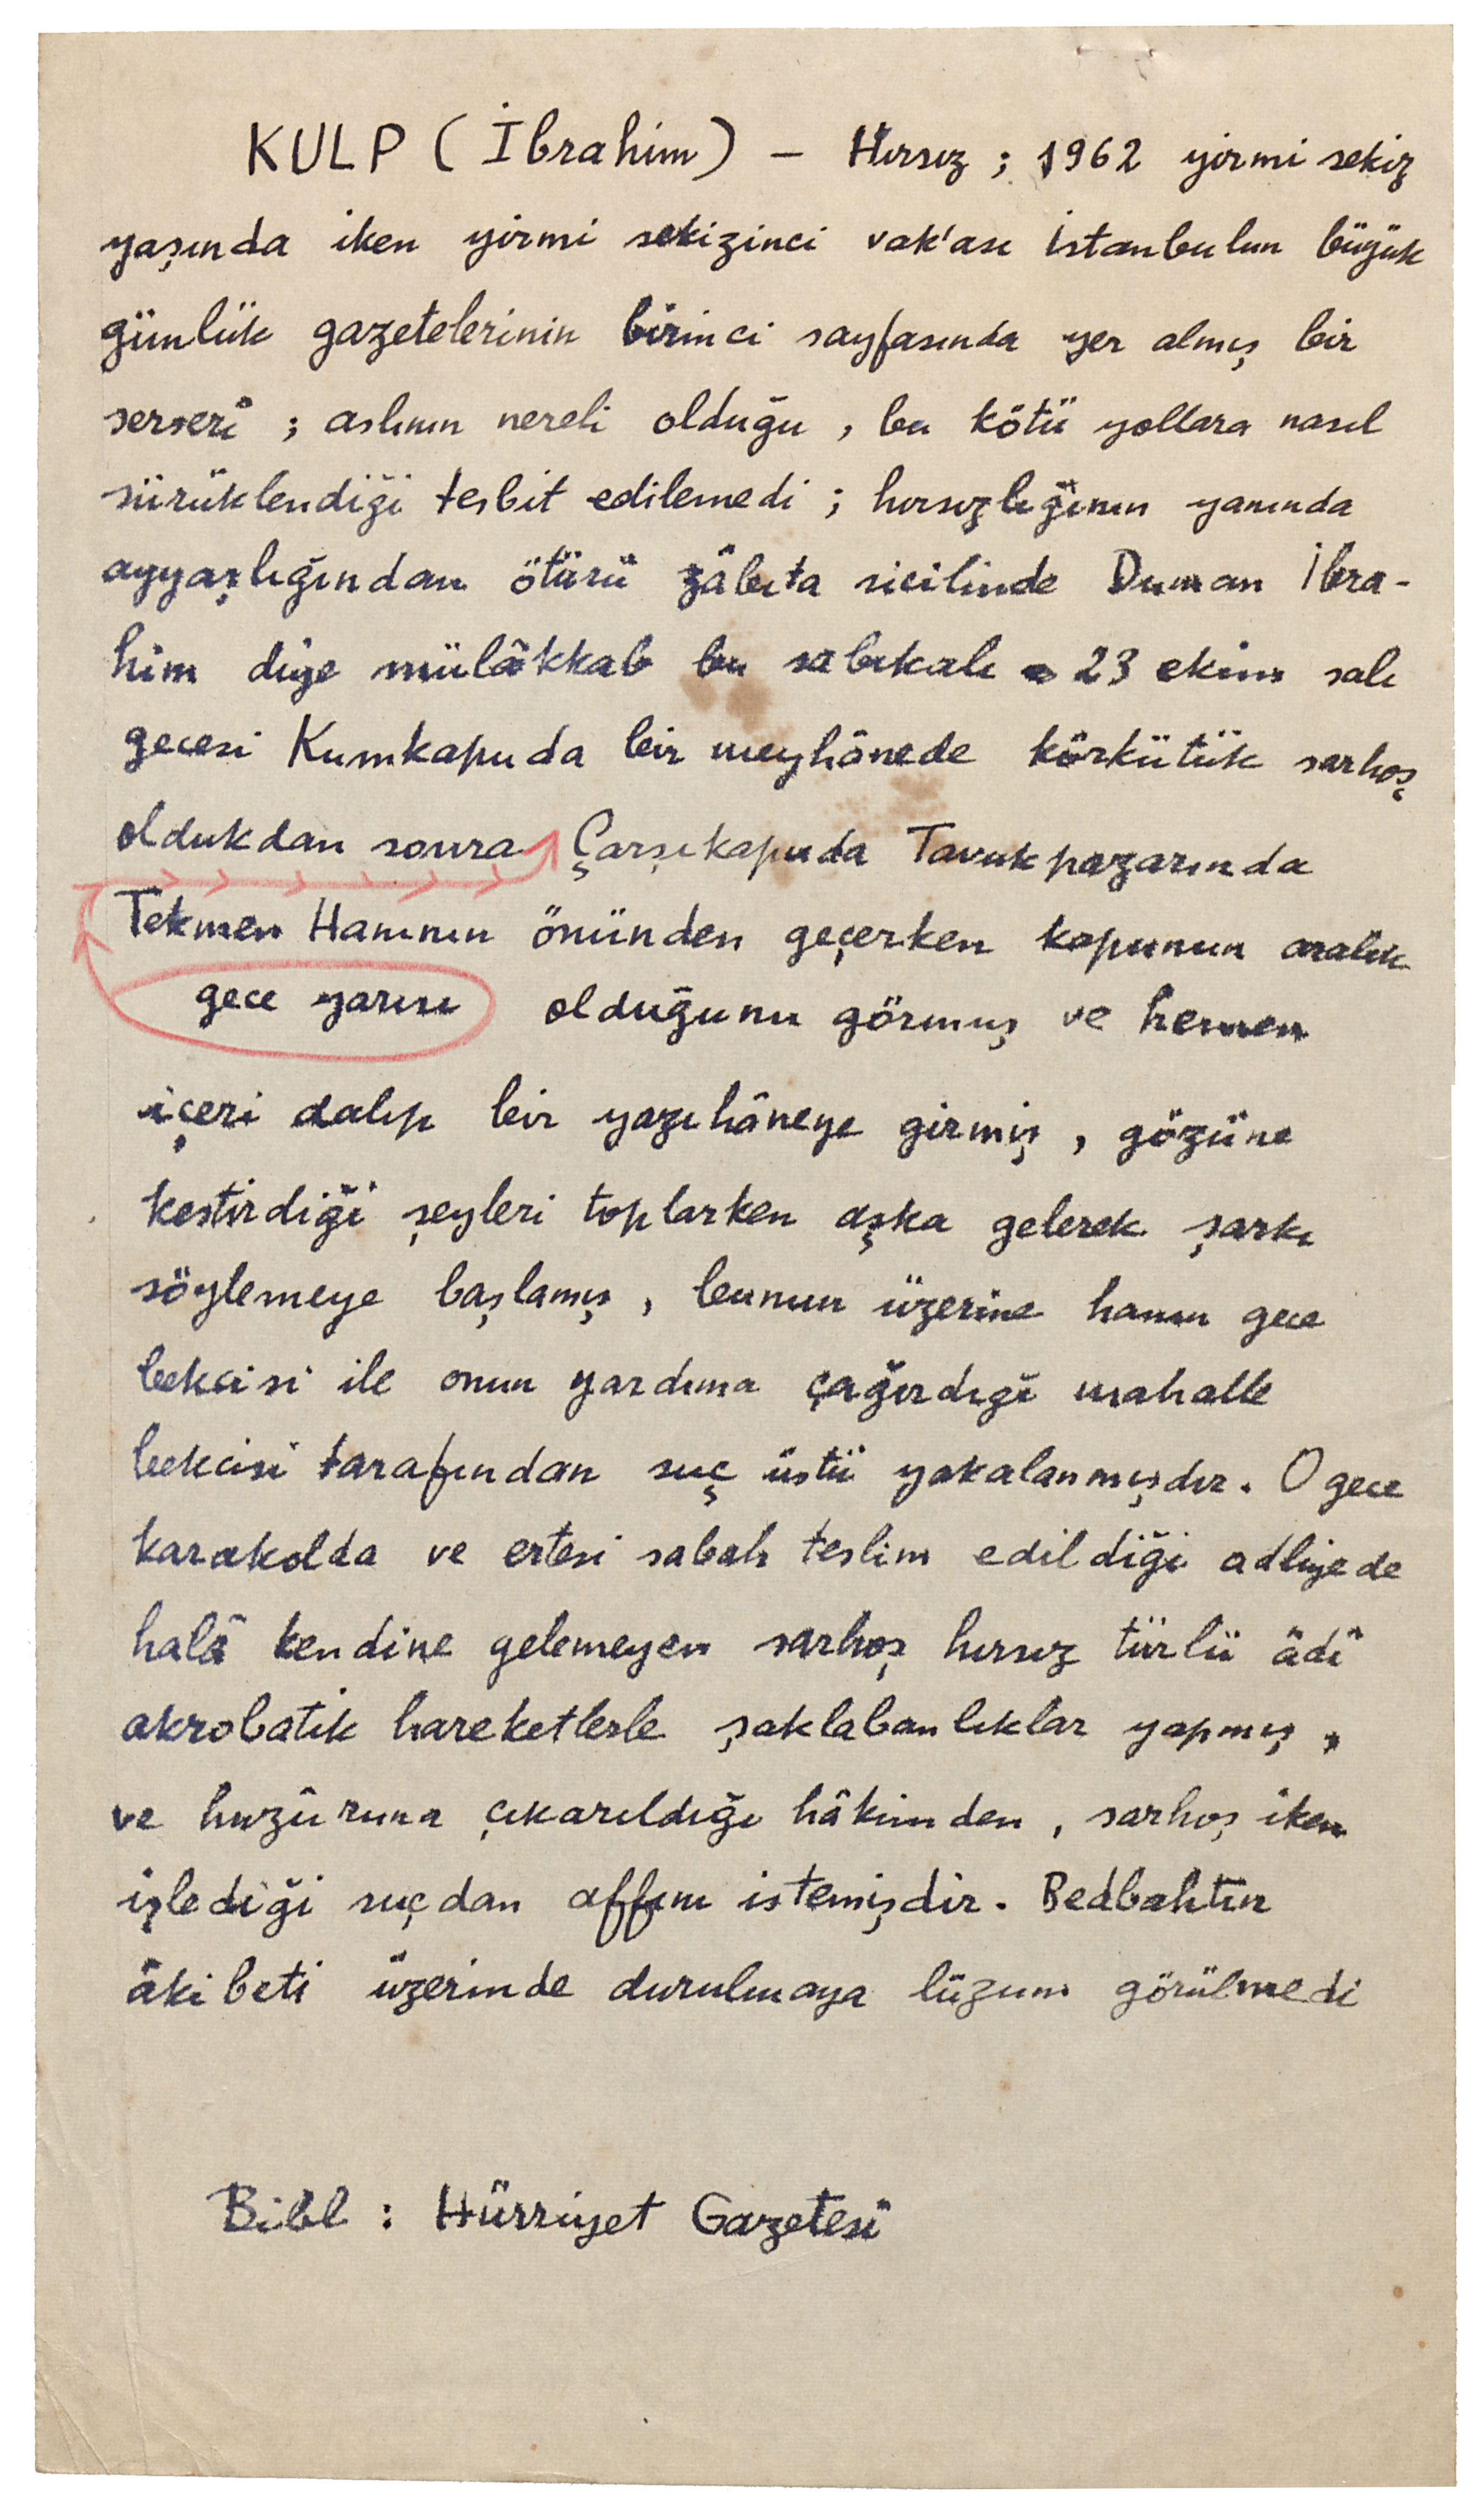 KULP ( İbrahim ) – Hırsız ; 1962 yirmi sekiz
yaşında iken yirmi sekizinci vak'ası İstanbulun büyük
günlük gazetelerinin birinci sayfasında yer almış bir
serseri ; aslının nereli olduğu , bu kötü yollara nasıl
sürüklendiği tesbit edilemedi ; hırsızlığının yanında
ayyaşlığından ötürü zâbıta sicilinde Duman İbra-
him diye mülâkkab bu sabıkalı 23 ekim salı
gecesi Kumkapuda bir meyhânede körkütük sarhoş
oldukdan sonra Çarşıkapuda Tavukpazarında
Tekmen Hanının önünden geçerken kapunun aralık
gece yarısı olduğunu görmüş ve hemen
içeri dalıp bir yazıhâneye girmiş , gözüne
kestirdiği şeyleri toplarken aşka gelerek şarkı
söylemeye başlamış , bunun üzerine hanın gece
bekcisi ile onun yardıma çağırdığı mahalle
bekcisi tarafından suç üstü yakalanmışdır. O gece
karakolda ve ertesi sabah teslim edildiği adliyede
halâ kendine gelemeyen sarhoş hırsız türlü âdi
akrobatik hareketlerle şaklabanlıklar yapmış ,
ve huzûruna çıkarıldığı hâkimden , sarhoş iken
işlediği suçdan affını istemişdir. Bedbahtın
âkibeti üzerinde durulmaya lüzum görülmedi
Bibl : Hürriyet Gazetesi